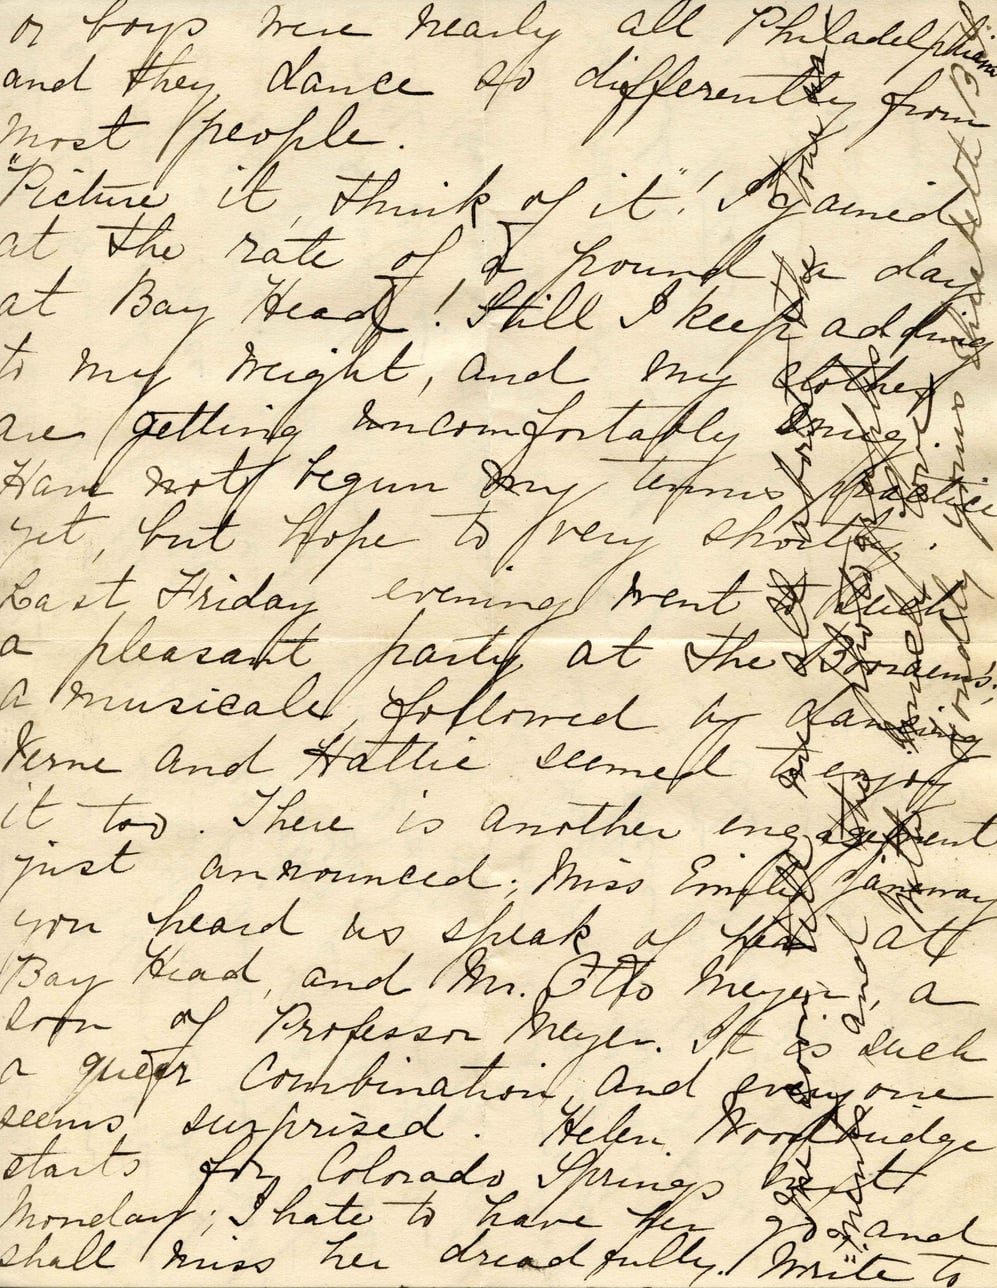 or boys were nearly all Philadelphians
and they dance so differently from
most people.
"Picture it, think of it"! I gained
at the rate of a pound a day
at Bay Head! Still I keep adding
to my weight, and my clothes
are getting uncomfortably snug.
Have not begun my tennis practice
yet, but hope to very shortly.
Last Friday evening went to such
a pleasant party at the Bordens',
a musicale, followed by dancing
Verne and Hattie seemed to enjoy
it too. There is another engagement
just announced; Miss Emily Janeway
you heard us speak of her at
Bay Head, and Mr. Otto Meyer, a
son of Professor Meyer. It is such
a queer combination, and everyone
seems surprised. Helen Woodbridge
starts for Colorado Springs next
Monday; I hate to have her go and
shall miss her dreadfully. Write to
me soon tell me all about the
and the
With much love
Fondly yours Elizabeth B.